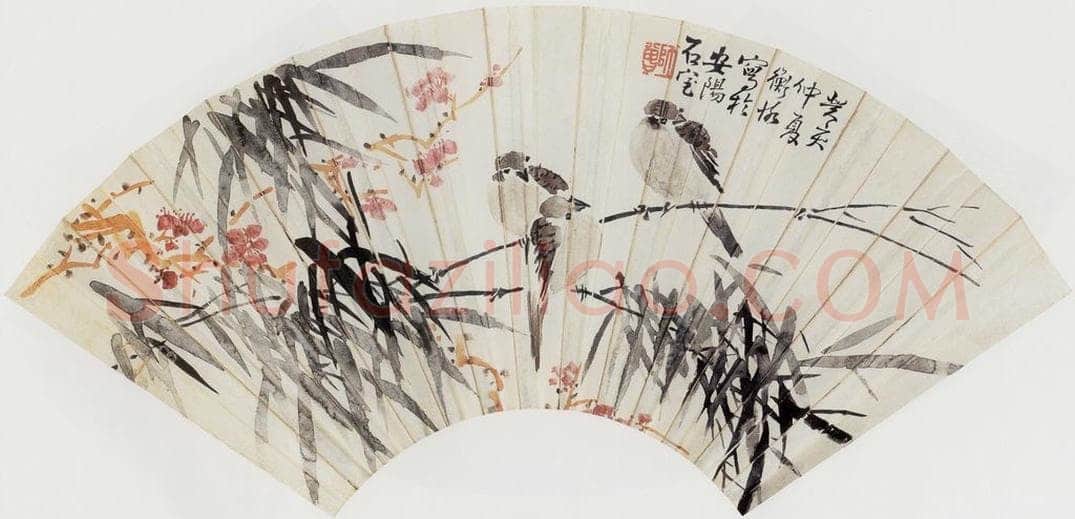 癸亥
仲夏
衡恪
寫於
安陽
石室
Shufaziliao.COM